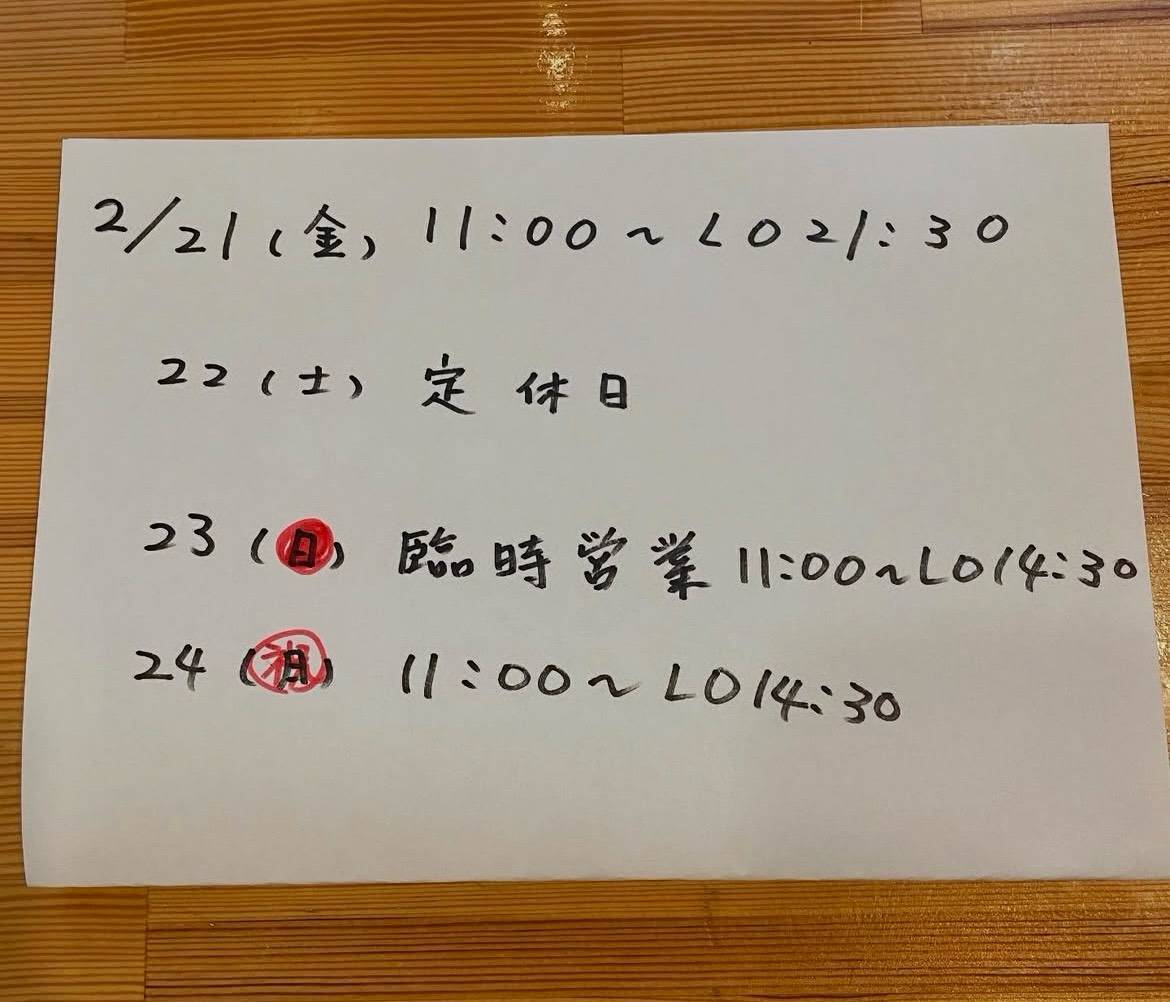 2/21(金) 11:00〜LO21:30
22(土) 定休日
23(日) 臨時営業 11:00〜LO14:30
24(月)祝 11:00〜LO14:30